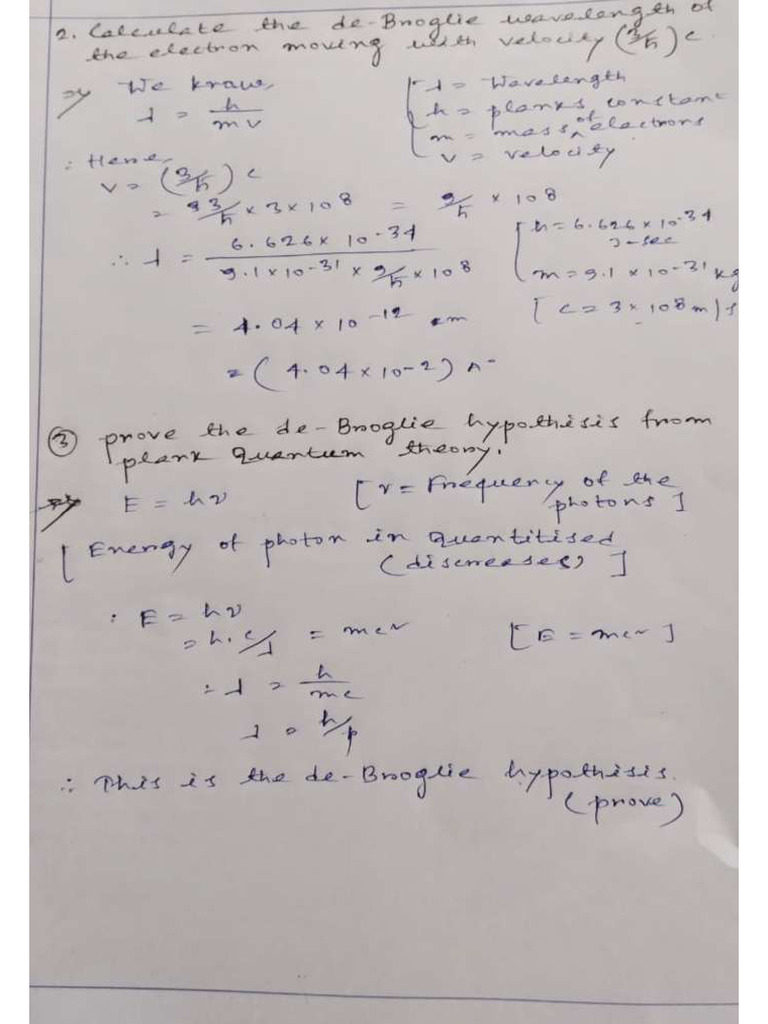 2. Calculate the de-Broglie wavelength of
the electron moving with velocity (3/5) c.
=> We know,
λ = h / mv
[ λ = Wavelength
h = planks constant
m = mass of electrons
v = velocity
∴ Here,
v = (3/5) c
= 3/5 × 3 × 10^8 = 9/5 × 10^8
∴ λ = 6.626 × 10^-34 / 9.1 × 10^-31 × 9/5 × 10^8
[ h = 6.626 × 10^-34
J-sec
m = 9.1 × 10^-31 kg
[ c = 3 × 10^8 m/s
= 4.04 × 10^-12 m
= (4.04 × 10^-2) A°
③ prove the de-Broglie hypothisis from
plank quantum theory.
=> E = hν [ν = Frequency of the
photons]
[ Energy of photon in quantitised
(discreases) ]
∴ E = hν
= h. c/λ = mc² [E = mc²]
∴ λ = h / mc
λ = h/p
∴ This is the de-Broglie hypothisis.
(prove)